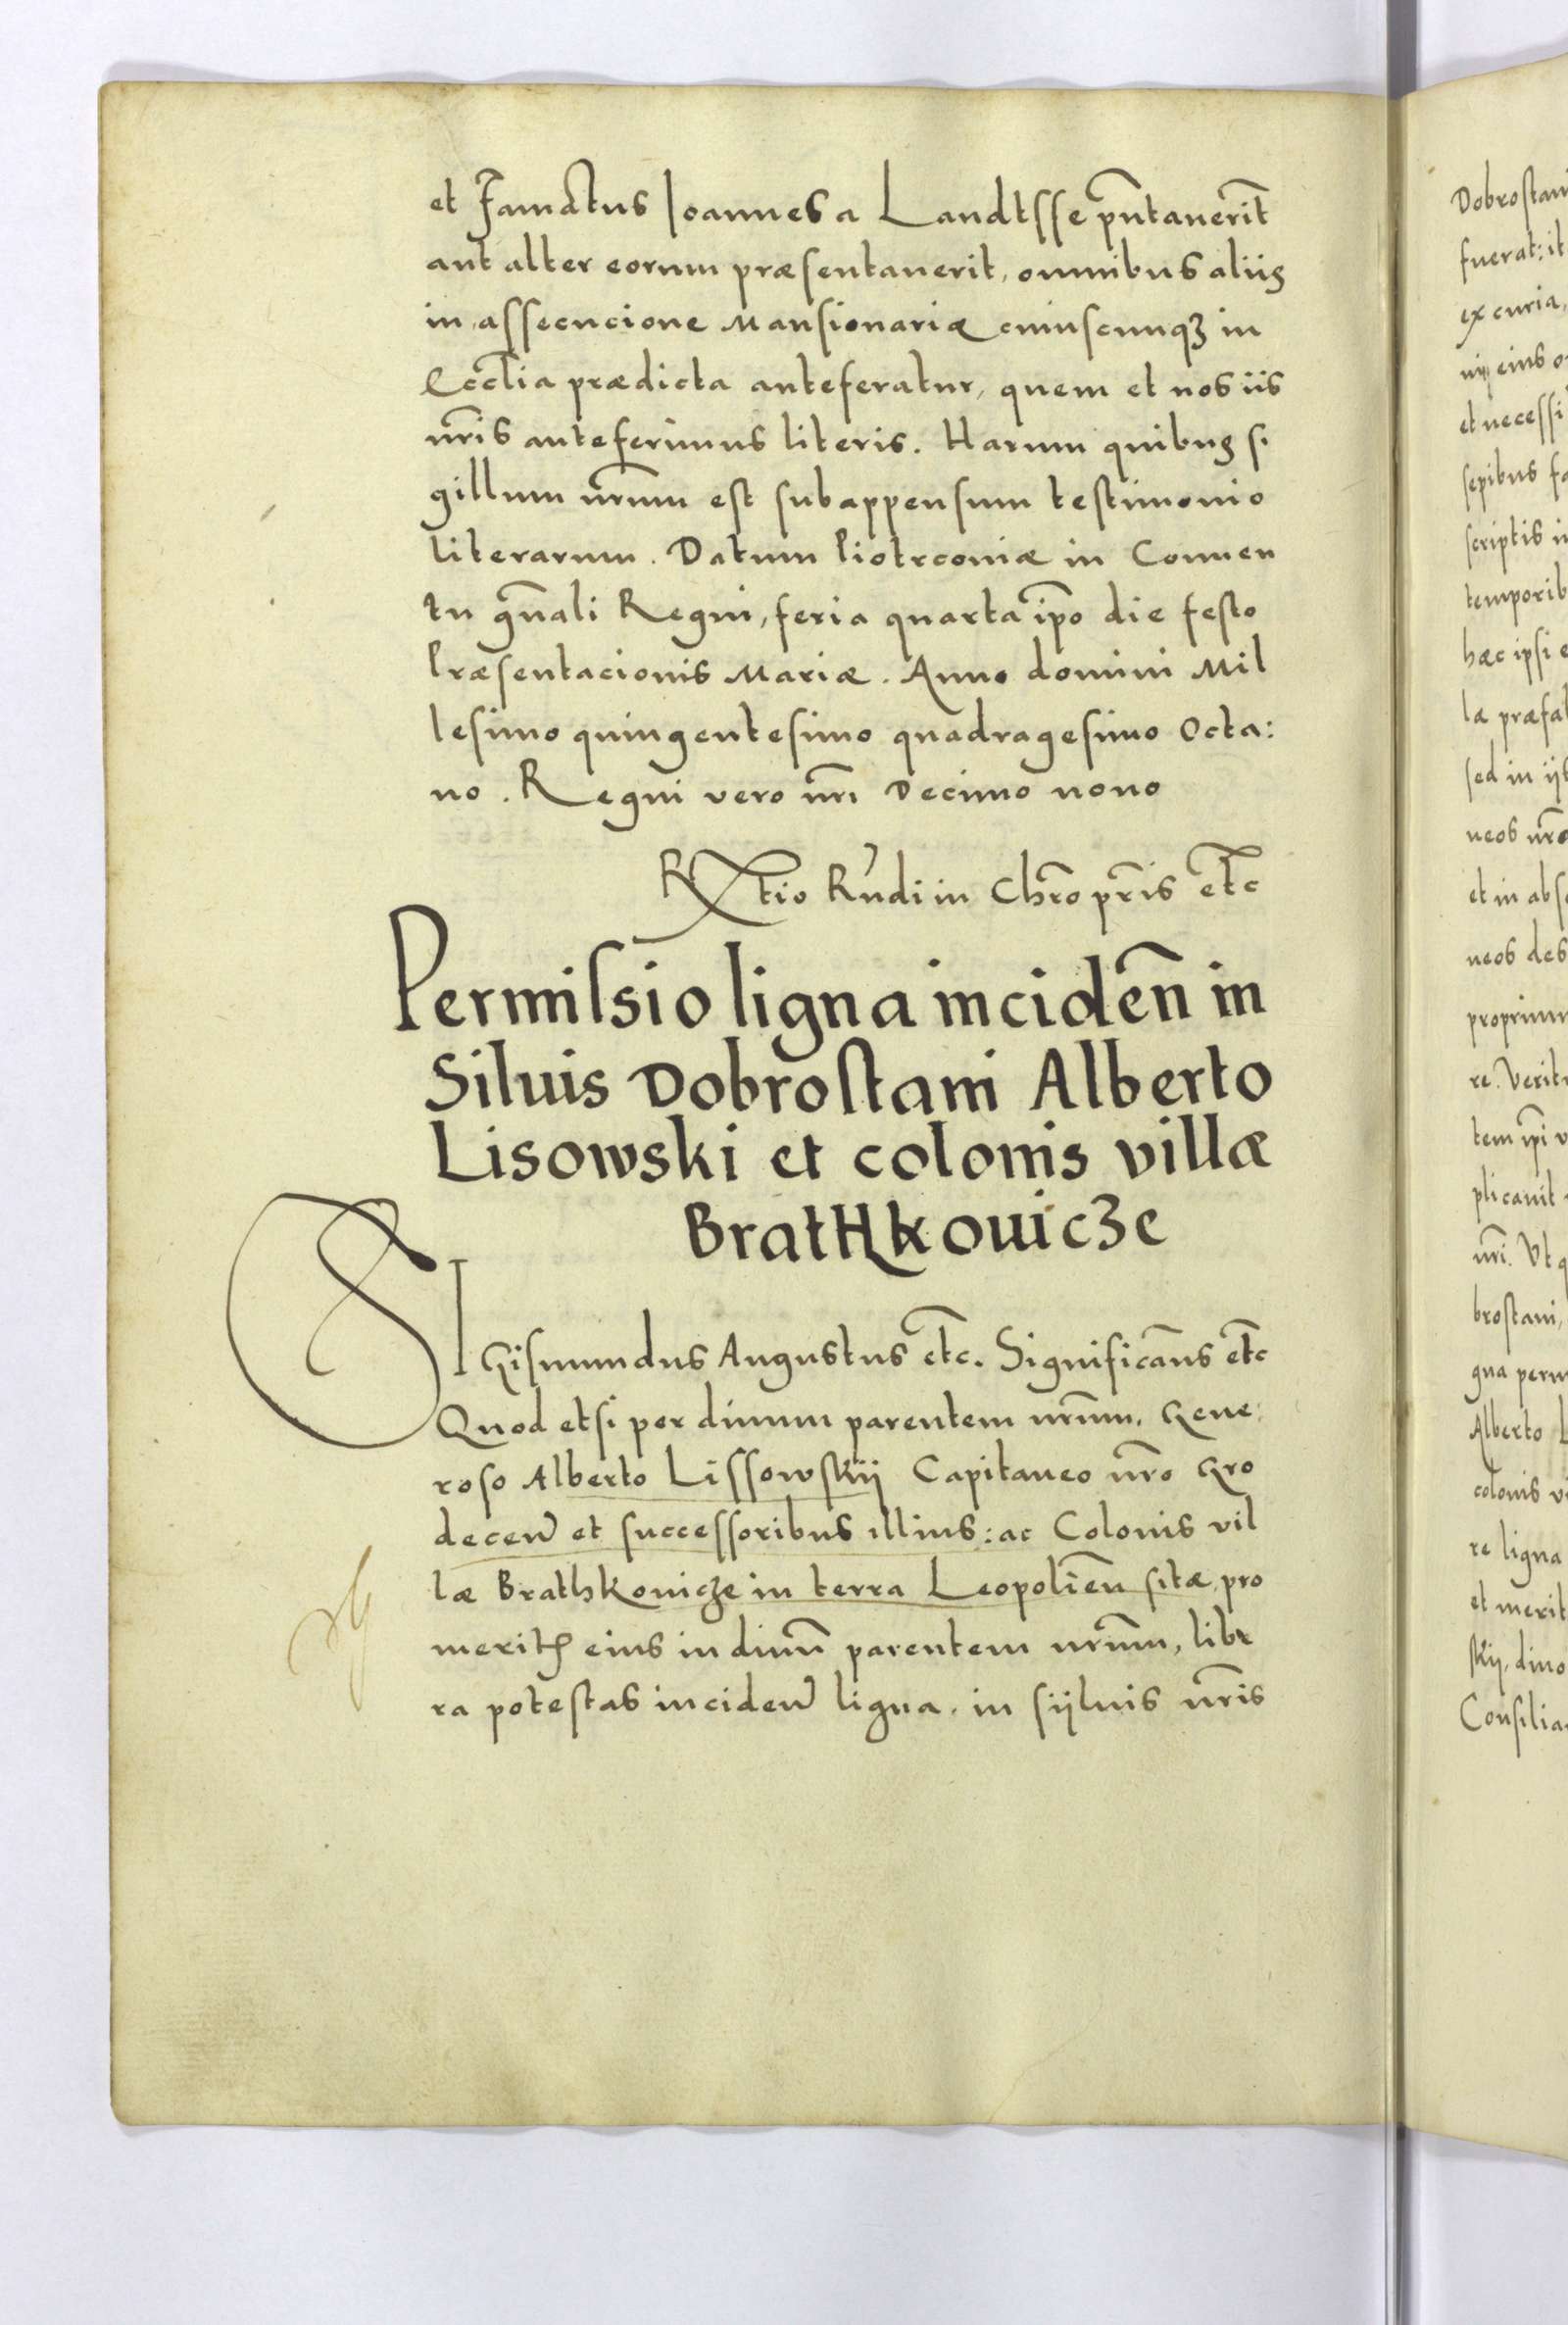 et Famatus Ioannes a Landtsse pn̄tauerit
aut alter eorum præsentauerit, omnibus aliis
in assecucione Mansionariæ cuiuscunqꝫ in
Eccl̄ia prædicta anteferatur, quem et nos iis
nr̄is anteferimus literis. Harum quibus si
gillum nr̄um est subappensum testimonio
literarum. Datum Piotrcouiæ in Conuen
tu gn̄ali Regni, feria quarta ip̄o die festo
Præsentacionis Mariæ. Anno domini Mil
lesimo quingentesimo quadragesimo Octa:
uo. Regni vero nr̄i Decimo nono
Rtio Rn̄di in Chr̄o pr̄is etc̄
Permissio ligna inciden̄ in
Siluis Dobrostani Alberto
Lisowski et colonis villæ
Brathkouicze
SIGismundus Augustus etc̄. Significan̄s etc̄
Quod etsi per diuum parentem nr̄um, Gene:
roso Alberto Lissowskij Capitaneo nr̄o Gro
decen̄ et successoribus illius: ac Colonis vil
læ Brathkouicze in terra Leopolien̄ sitæ, pro
meritis eius in diuum̄ parentem nr̄um, libe
ra potestas inciden̄ ligna, in sijluis nr̄is
Dobrostani
fuerat: it
ex curia,
eius o
et necessi
sepibus fa
scriptis in
temporib
hæc ipsi e
læ præfat
sed in ij
neos nr̄o
et in abs
neos des
proprium
re. Verit
tem ip̄i v
plicauit
nr̄i. Vt q
brostani,
gna perm
Alberto L
colonis vi
re ligna
et merit
skij, diuo
Consilia